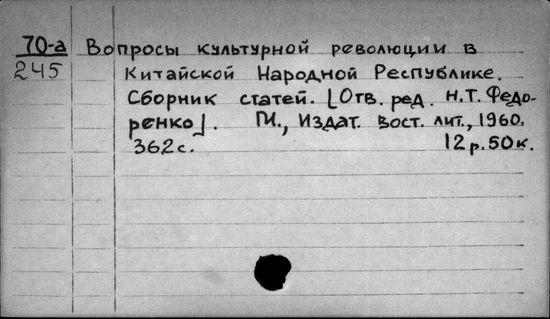 70-а Вопросы культурной революции в
245 Китайской Народной Республике.
Сборник статей. [Отв. ред. Н.Т. Федо-
ренко]. М., Издат. вост. лит., 1960.
362 с. 12 р. 50 к.